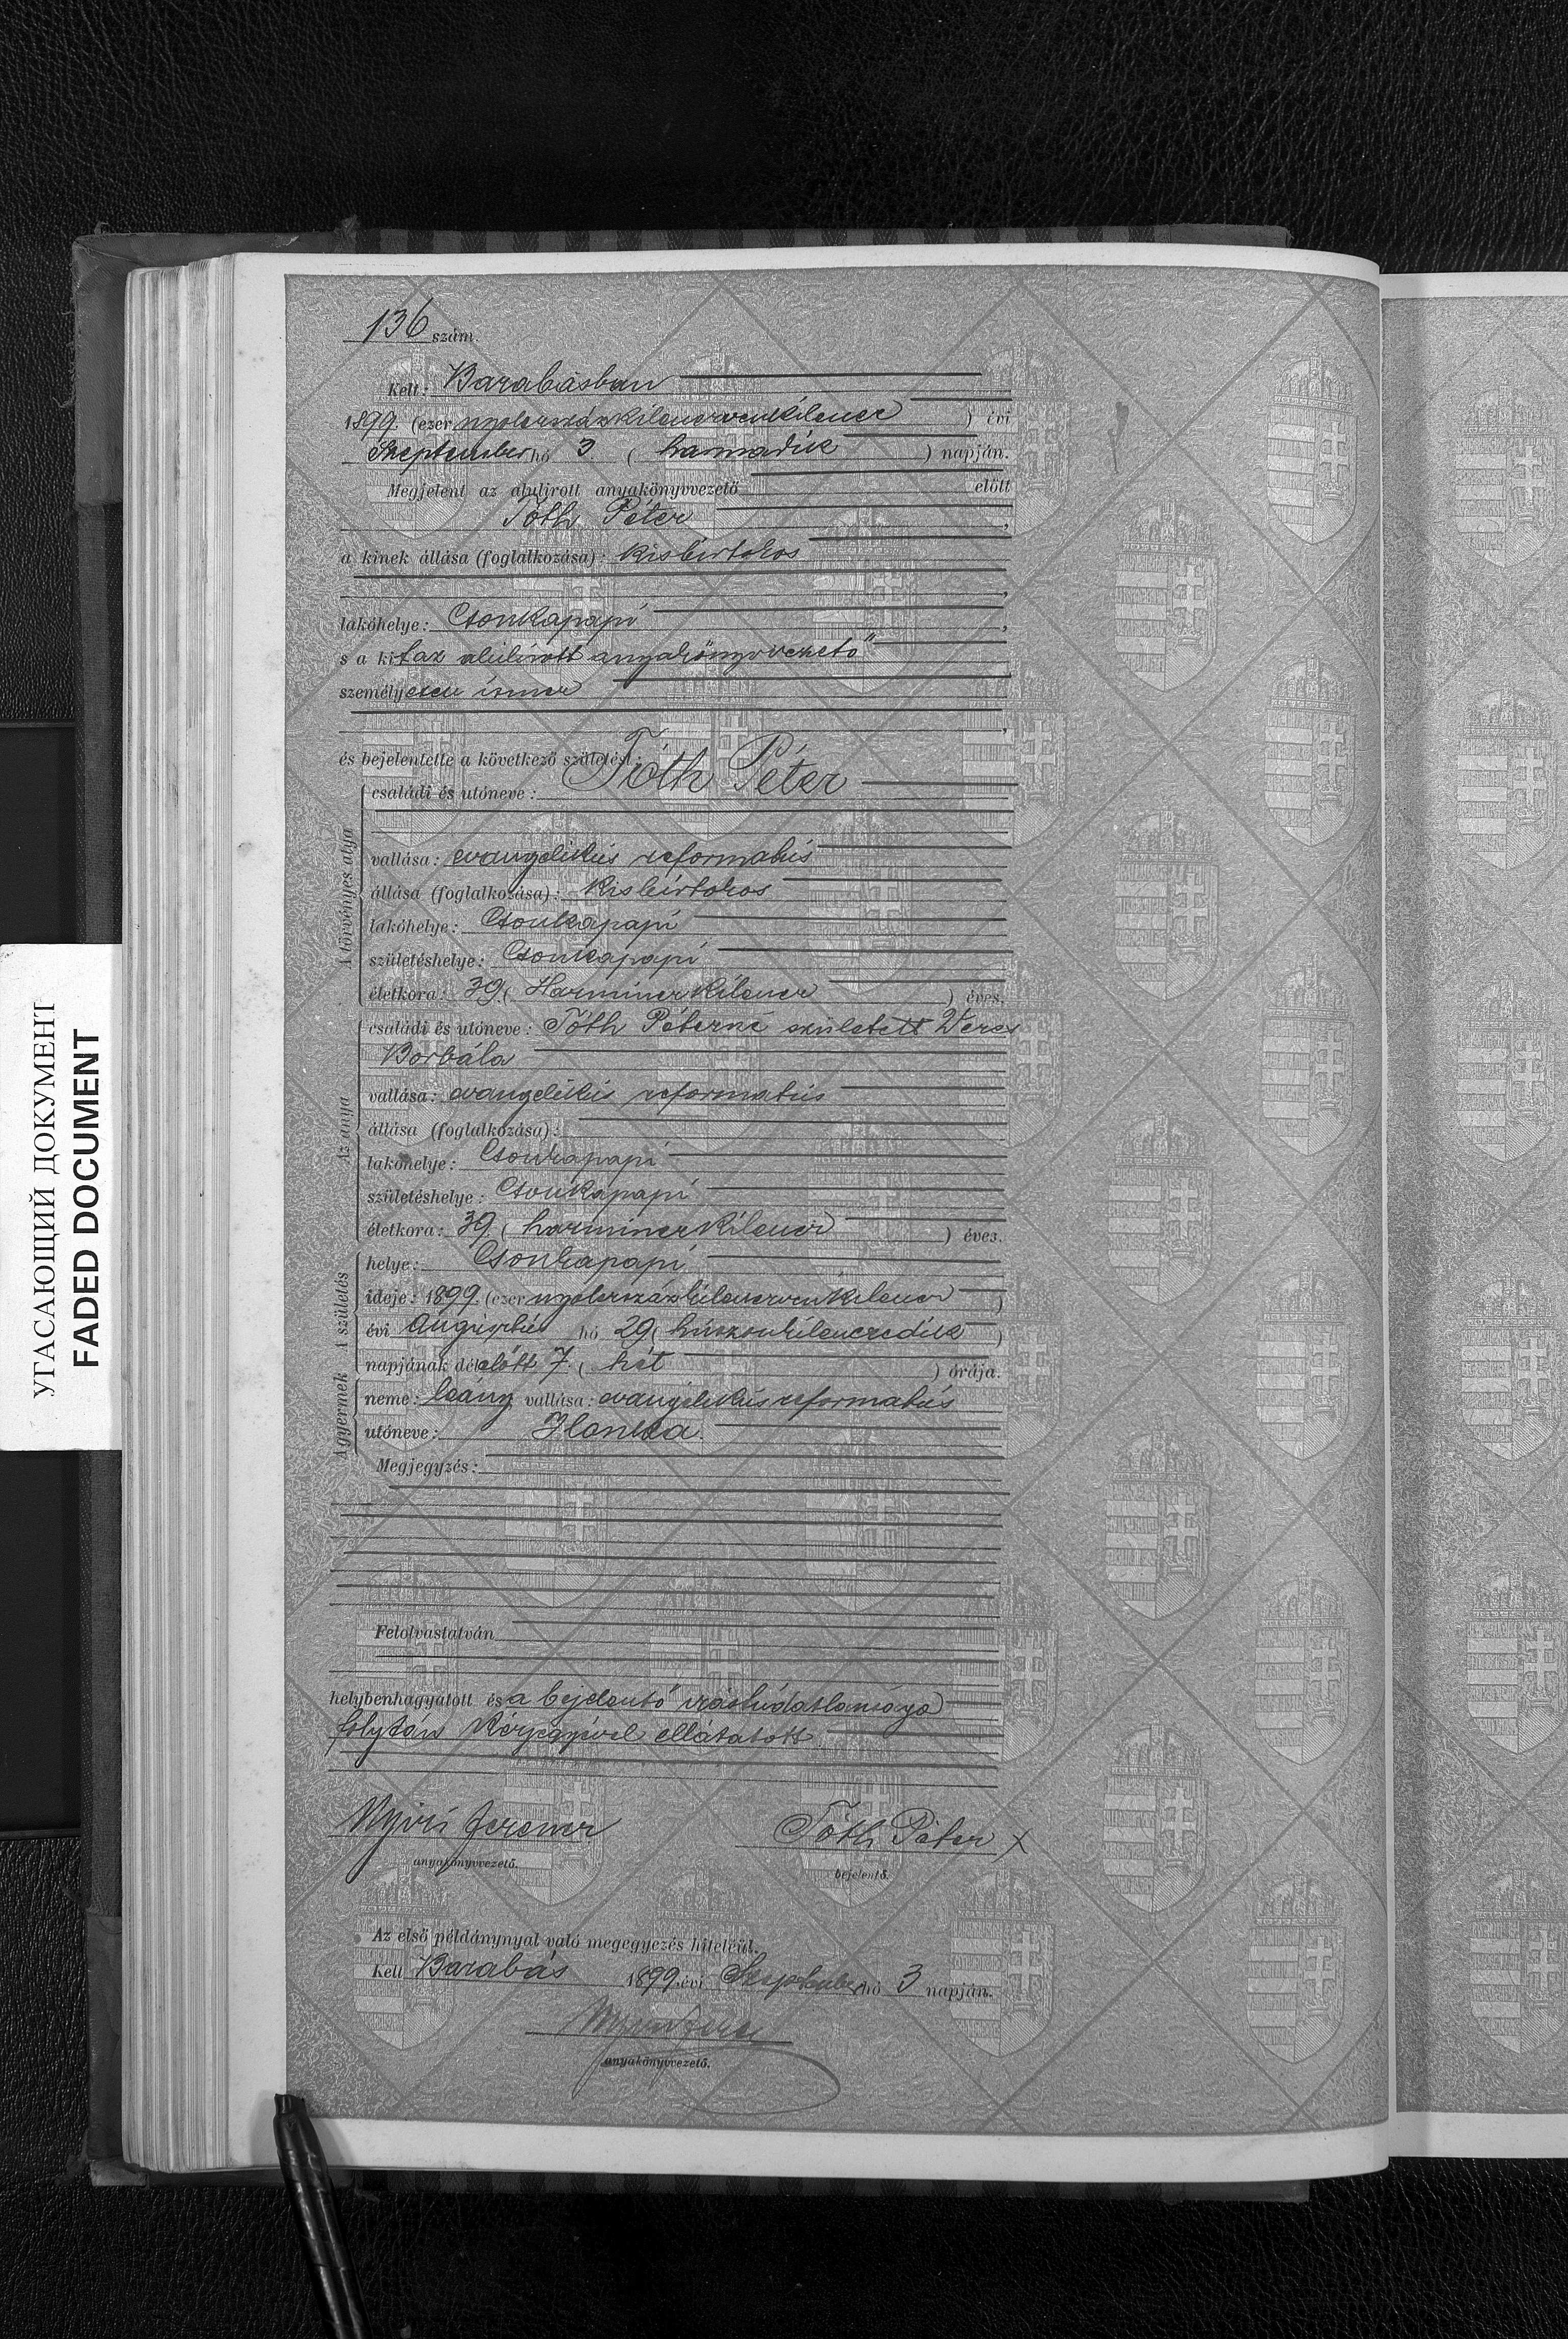 136 szám.
Kelt: Barabásban
1899. (ezer nyolcszázkilencvenkilenc) évi
Szeptember hó 3 (harmadik) napján.
Megjelent az alulirott anyakönyvvezető előtt
Tóth Péter,
a kinek állása (foglalkozása): kisbirtokos
,
lakóhelye: Csonkapapi,
s a kit az alulírott anyakönyvvezető
személyesen ismer
,
és bejelentette a következő születést:
A törvényes atyja
családi és utóneve: Tóth Péter
vallása: evangelikús reformatús
állása (foglalkozása): kisbirtokos
lakóhelye: Csonkapapi
születéshelye: Csonkapapi
életkora: 39 (Harminckilenc) éves.
Az anya
családi és utóneve: Tóth Péterné született Veres
Borbála
vallása: evangelikús reformatús
állása (foglalkozása):
lakóhelye: Csonkapapi
születéshelye: Csonkapapi
életkora: 39 (harminckilenc) éves.
A születés
helye: Csonkapapi
ideje: 1899. (ezer nyolcszázkilencvenkilenc)
évi Augusztus hó 29 (húszonkilencedik)
napjának délelőtt 7. (hét) órája.
A gyermek
neme: leány vallása: evangelikús reformatús
utóneve: Ilonka.
Megjegyzés:
Felolvastatván
helybenhagyatott és a bejelentő irástúdatlansága
folytán kézjegyével ellátatott.
Nyiri Ferencz Tóth Péter X
anyakönyvvezető. bejelentő.
Az első példánynyal való megegyezés hiteléül.
Kelt Barabás 1899. évi Szeptember hó 3 napján.
anyakönyvvezető.
УГАСАЮЩИЙ ДОКУМЕНТ
FADED DOCUMENT